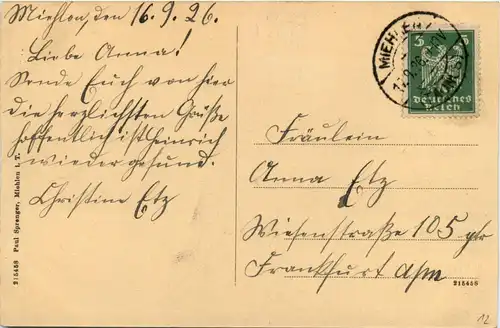 Miehlen, den 16.9.26.
Liebe Anna!
Sende Euch von hier
die herzlichsten Grüße
hoffentlich ist Heinrich
wieder gesund.
Christine Etz
Fräulein
Anna Etz
Wiesenstraße 105 ptr
Frankfurt a/m
MIEHLEN
5
deutsches
Reich
215456 Paul Sprenger, Miehlen i. T.
215456
12